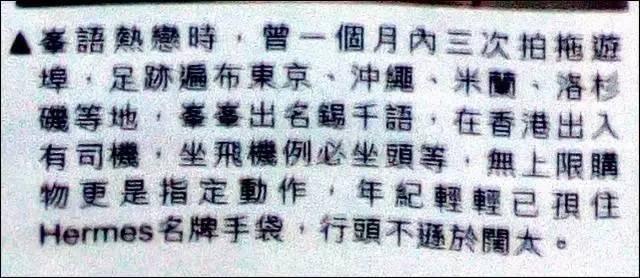 ▲峯語熱戀時，曾一個月內三次拍拖遊
埠，足跡遍布東京、沖繩、米蘭、洛杉
磯等地，峯峯出名錫千語，在香港出入
有司機，坐飛機例必坐頭等，無上限購
物更是指定動作，年紀輕輕已孭住
Hermes名牌手袋，行頭不遜於闊太。